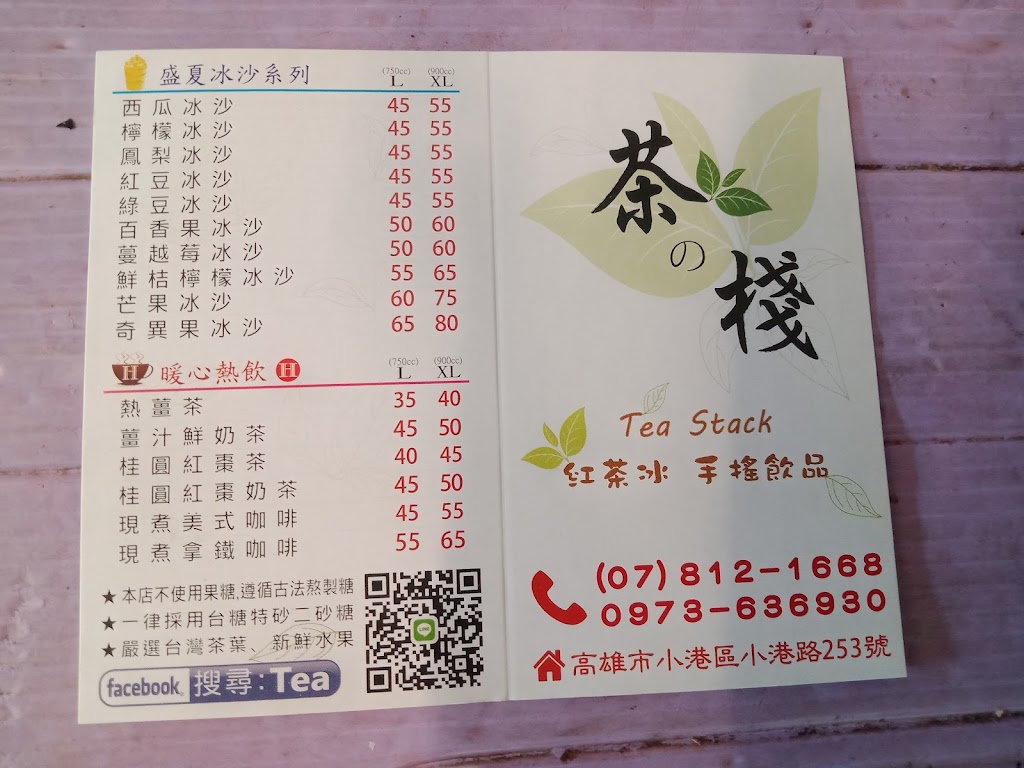 盛夏冰沙系列 (750cc) L (900cc) XL
西瓜冰沙 45 55
檸檬冰沙 45 55
鳳梨冰沙 45 55
紅豆冰沙 45 55
綠豆冰沙 45 55
百香果冰沙 50 60
蔓越莓冰沙 50 60
鮮桔檸檬冰沙 55 65
芒果冰沙 60 75
奇異果冰沙 65 80
H 暖心熱飲 H (750cc) L (900cc) XL
熱薑茶 35 40
薑汁鮮奶茶 45 50
桂圓紅棗茶 40 45
桂圓紅棗奶茶 45 50
現煮美式咖啡 45 55
現煮拿鐵咖啡 55 65
★本店不使用果糖,遵循古法熬製糖
★一律採用台糖特砂二砂糖
★嚴選台灣茶葉、新鮮水果
LINE
facebook 搜尋:Tea
茶の棧
Tea Stack
紅茶冰 手搖飲品
(07)812-1668
0973-636930
高雄市小港區小港路253號